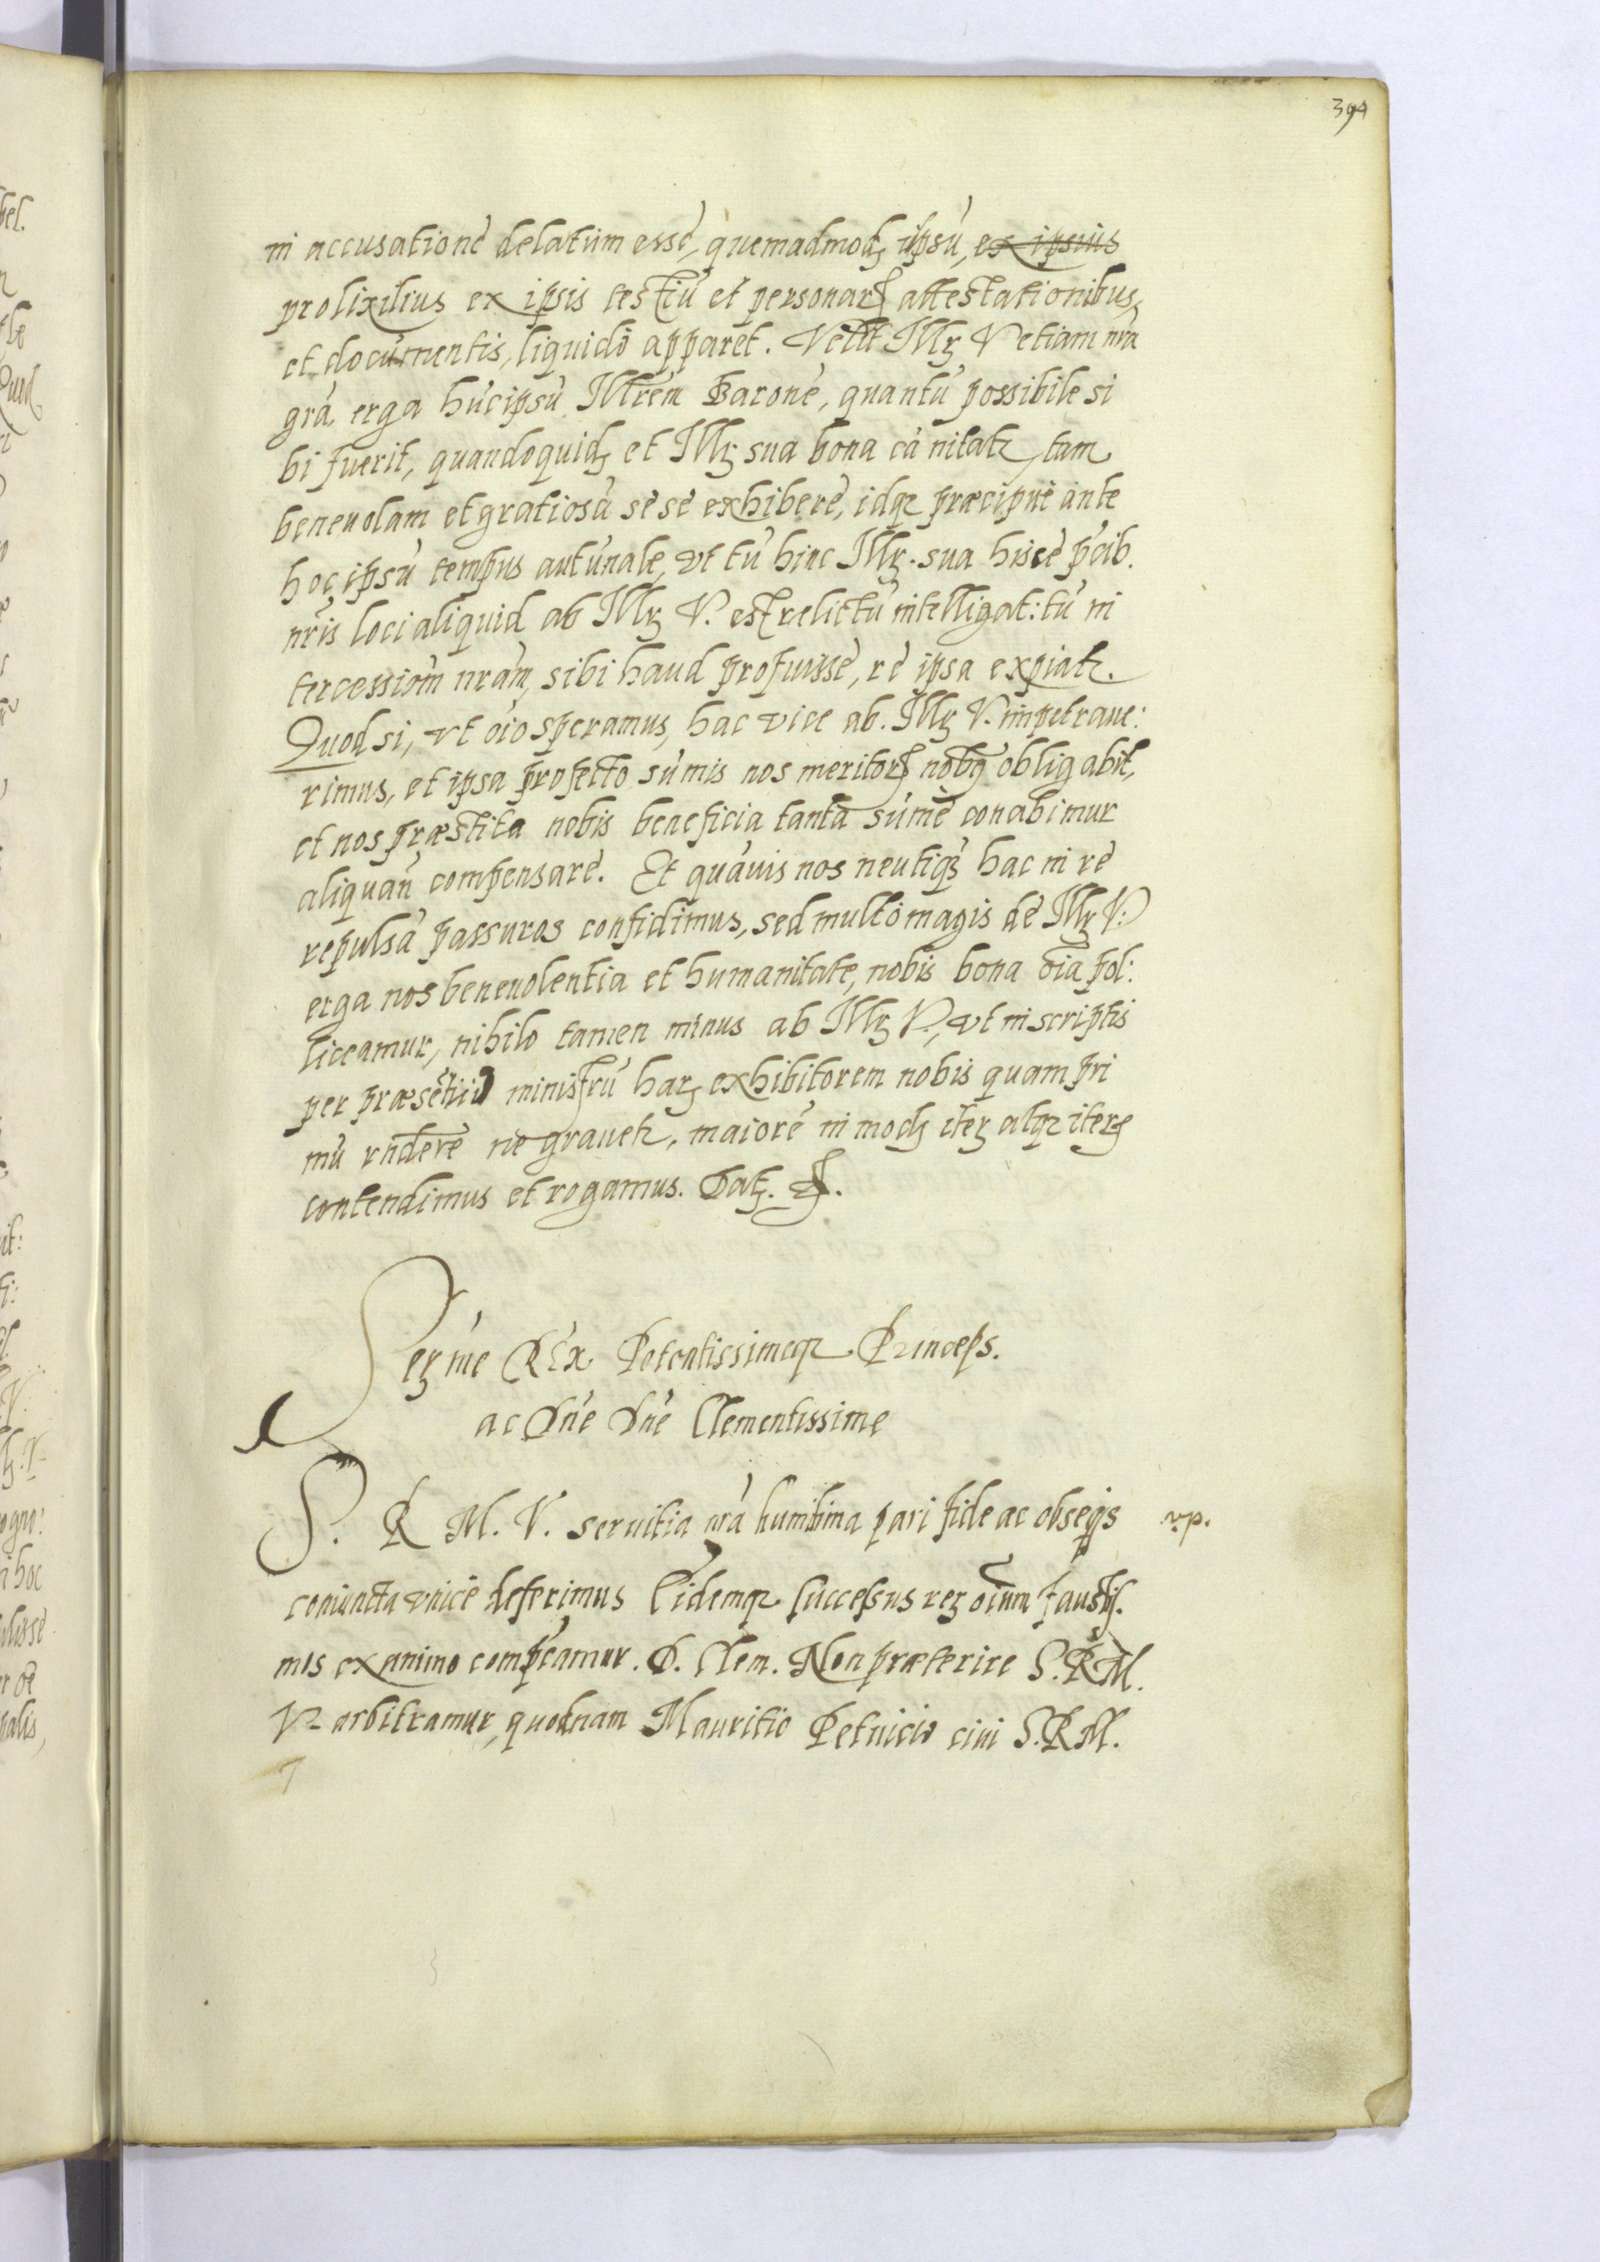 394
in accusatione delatum esse, quemadmodȝ ipsu, ex ipsius
prolixilius ex ipsis testiū et personarꝝ attestationibus,
et documentis, liquido apparet. Velit Illꝫ V etiam nrā
grā, erga hūc ipsū Illrem Barone, quantū possibile si
bi fuerit, quandoquidȝ et Illꝫ sua bona
benevolam et gratiosā sese exhibere, idqꝫ præcipuè ante
hoc ipsū tempus autūnale, vt tū hinc Illꝫ. sua hisce pcib.
nris loci aliquid ab Illꝫ V. est relictū intelligat: tū in
tercessiom nram, sibi haud profuisse, re ipsa expiatꝛ.
Quod si, vt oīo speramus, hac vice ab. Illꝫ V. impetraue:
rimus, et ipsa profecto sūmis nos meritorꝝ obligabit,
et nos præstita nobis beneficia tanta sūmè conabimur
aliquan compensare. Et quāvis nos neutiqȝ hac in re
repulsā passuros confidimus, sed multò magis de Illꝫ V:
erga nos benevolentia et humanitate, nobis bona oīa pol:
liceamur, nihilo tamen minus ab Illꝫ V., vt in scriptis
per præsētiū ministrū harꝫ exhibitorem nobis quam pri
mū rn̄dere ne grauetꝛ, maiorē in modȝ iterꝫ atqꝫ iterꝫ
contendimus et rogamus. Datꝫ. ꝛc.
Serꝫme Rex Potentissimeqꝫ Princeps.
ac Dn̄e Dn̄e Clementissime
S. R M. V. seruitia nrā humibma pari fide ac obseqs
v.p.
coniuncta vnicè deferimus Eidemqꝫ successus rerꝫ oium faustiss.
mos ex animo compcamur. D. Clem. Non præterire S. R M.
V. arbitramur, quodnam Mauritio Petuicio ciui S. R M.